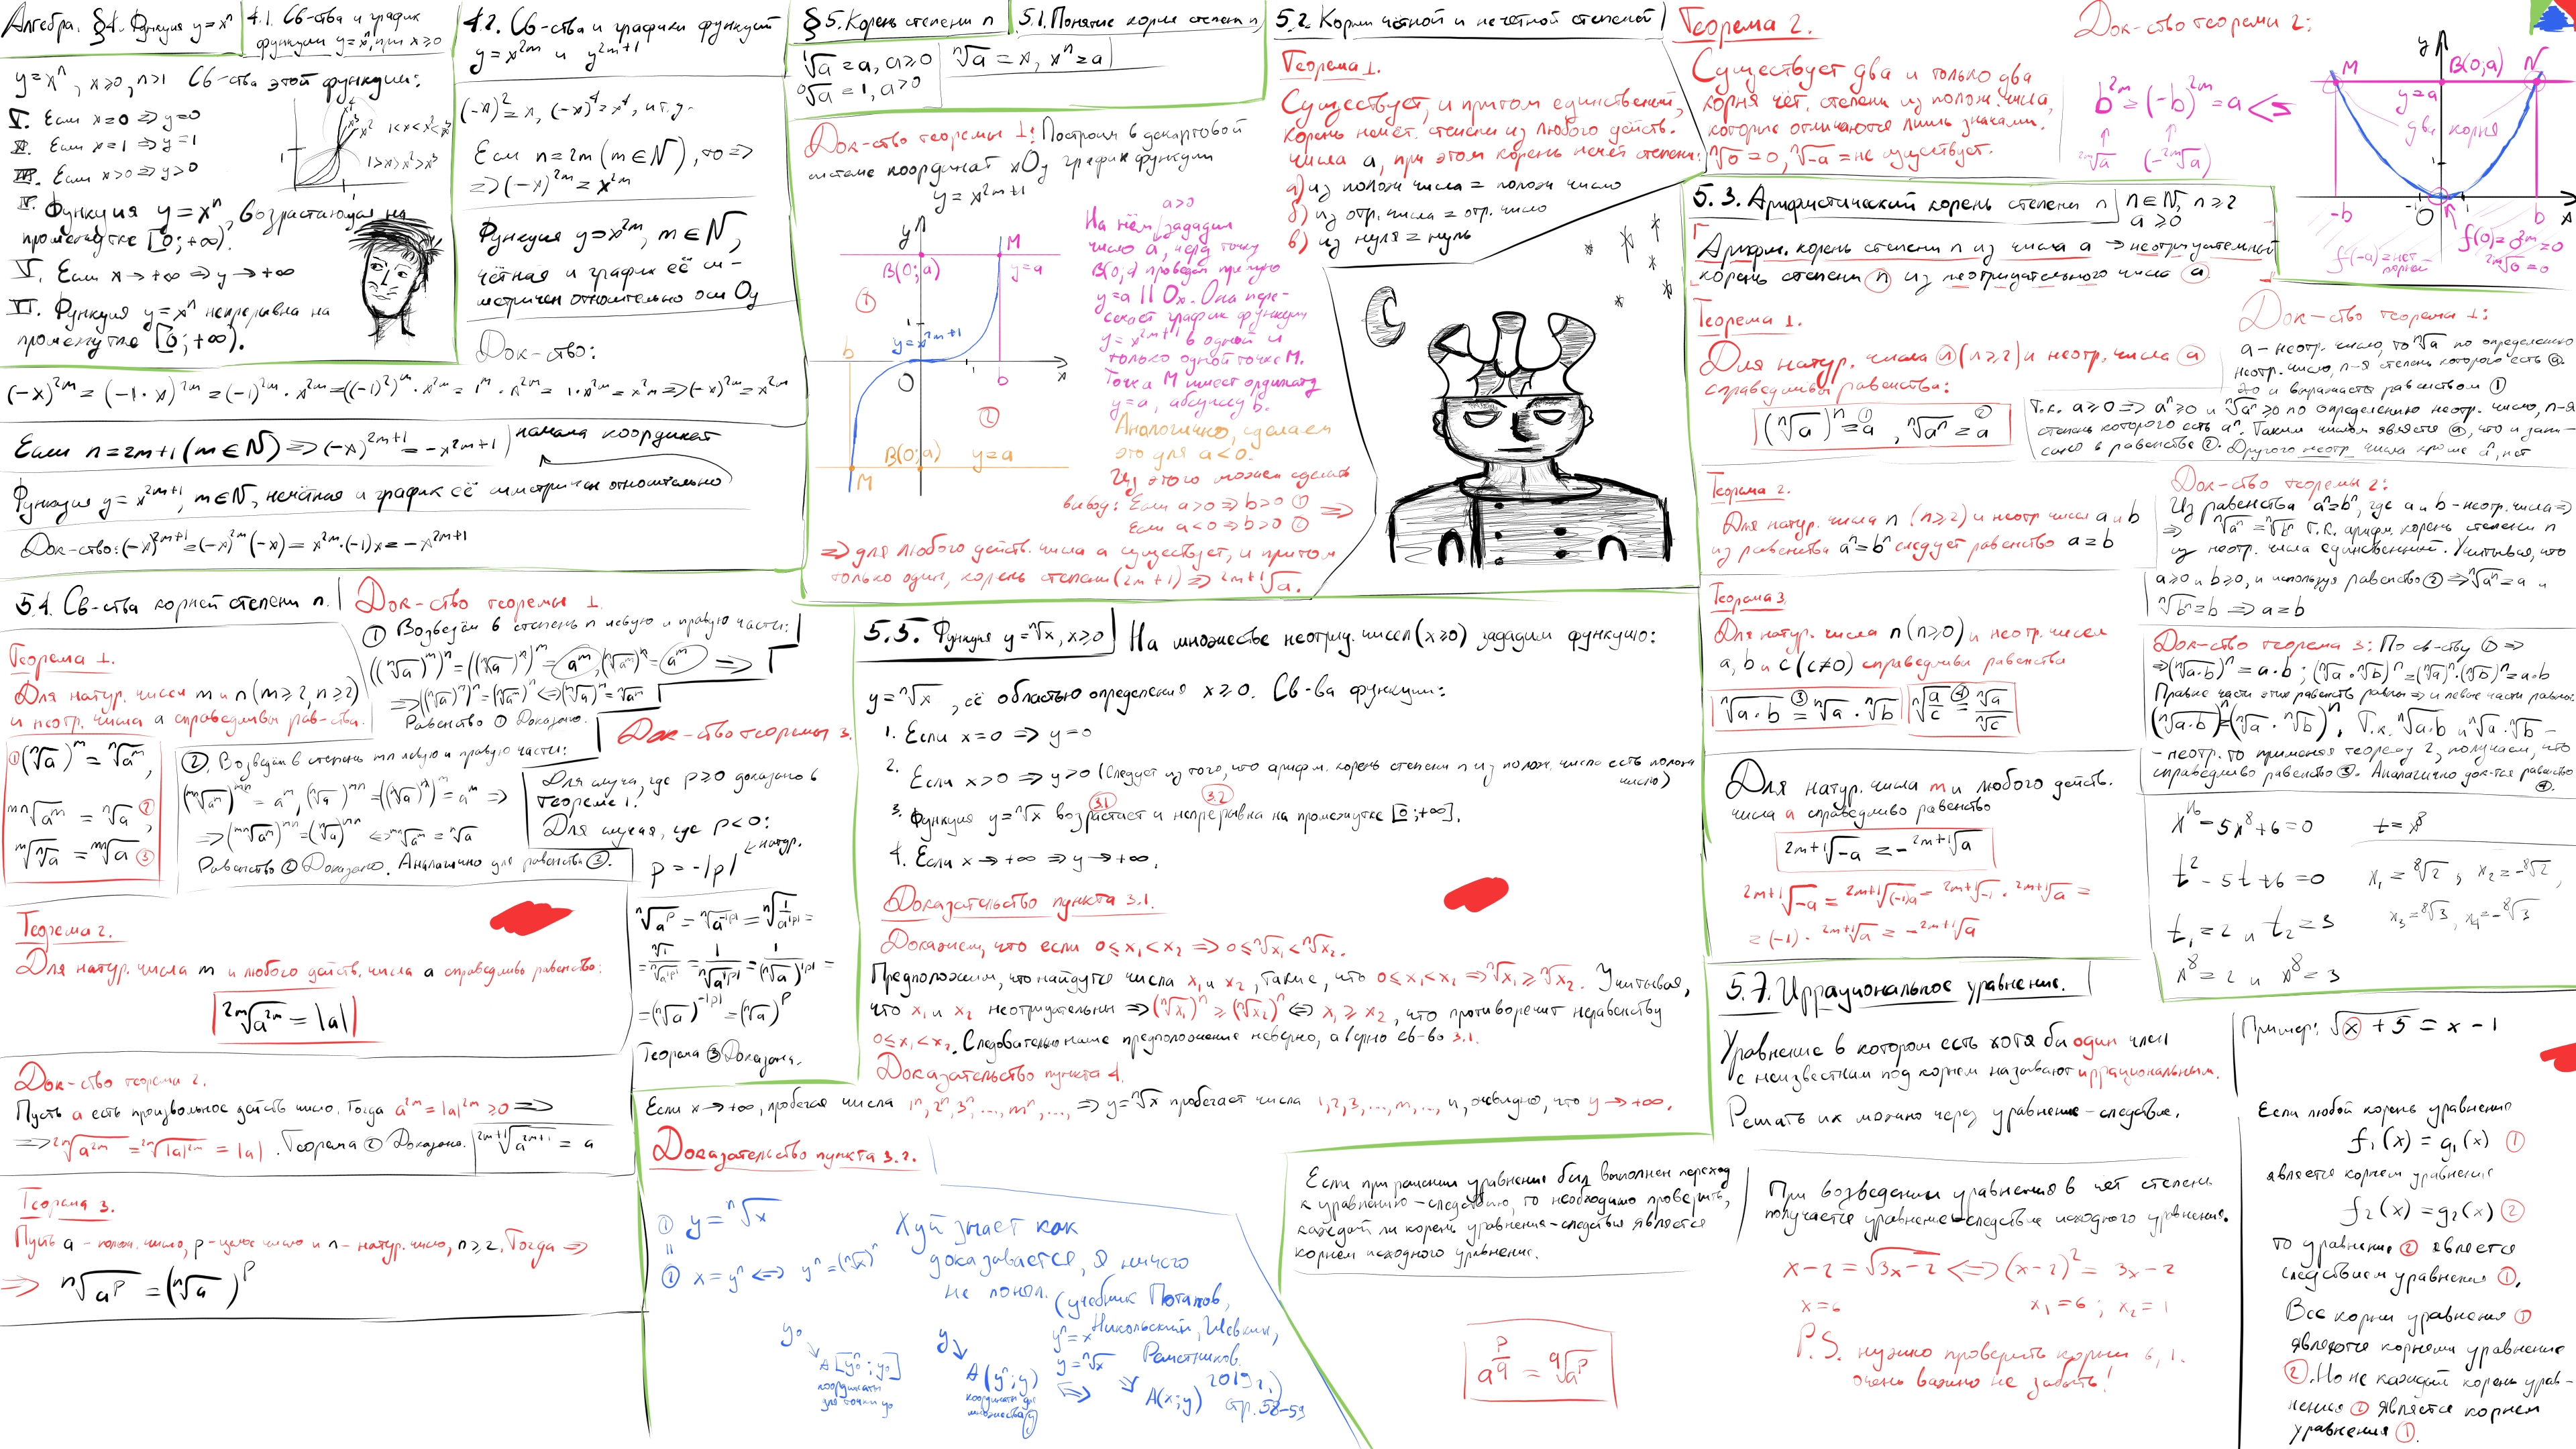 Алгебра. §4. Функция y=xⁿ
4.1. Св-ства и график
функции y=xⁿ, при x≥0
y=xⁿ, x≥0, n>1 Св-ства этой функции:
I. Если x=0 => y=0
II. Если x=1 => y=1
III. Если x>0 => y>0
IV. Функция y=xⁿ, возрастающая на
промежутке [0;+∞).
V. Если x→+∞ => y→+∞
VI. Функция y=xⁿ непрерывна на
промежутке [0;+∞).
4.2. Св-ства и графики функций
y=x^2m и y^2m+1
(-x)²=x, (-x)⁴=x⁴, и т.д.
Если n=2m (m∈N), то =>
=> (-x)^2m = x^2m
Функция y=x^2m, m∈N,
чётная и график её си-
метричен относительно оси Oy
Док-ство:
(-x)^2m = (-1·x)^2m = (-1)^2m · x^2m = ((-1)²)^m · x^2m = 1^m · x^2m = 1·x^2m = x^2m => (-x)^2m = x^2m
Если n=2m+1 (m∈N) => (-x)^2m+1 = -x^2m+1
начала координат
Функция y=x^2m+1, m∈N, нечётная и график её симметричен относительно
Док-ство: (-x)^2m+1 = (-x)^2m (-x) = x^2m·(-1)x = -x^2m+1
§5. Корень степени n
5.1. Понятие корня степени n
¹√a = a, a≥0
⁰√a = 1, a>0
ⁿ√a = x, xⁿ=a
5.2. Корни чётной и нечётной степеней
Теорема 1.
Существует, и притом единственный,
корень нечёт. степени из любого действ.
числа a, при этом корень нечёт степени:
а) из полож числа = полож число
б) из отр. числа = отр. число
в) из нуля = нуль
Док-ство теоремы 1: Построим в декартовой
системе координат xOy график функции
y=x^2m+1
a>0
На нём зададим
число a, через точку
B(0;a) проведём прямую
y=a || Ox. Она пере-
секает график функции
y=x^2m+1 в одной и
только одной точке M.
Точка M имеет ординату
y=a, абсциссу b.
Аналогично, сделаем
это для a<0.
Из этого можем сделать
вывод: Если a>0 => b>0 ①
Если a<0 => b>0 ② =>
=> для любого действ. числа a существует, и притом
только один, корень степени (2m+1) => ^2m+1√a.
y
M
B(0;a)
y=a
①
y=x^2m+1
b
O
b
x
②
B(0;a)
y=a
M
Теорема 2.
Существует два и только два
корня чёт. степени из полож. числа,
которые отличаются лишь знаками.
ⁿ√0=0, ⁿ√-a = не существует.
Док-ство теоремы 2:
b^2m = (-b)^2m = a <=
^2m√a (-^2m√a)
y
M
B(0;a)
N
y=a
два корня
-b
O
b
x
5.3. Арифметический корень степени n
n∈N, n≥2
a≥0
Арифм. корень степени n из числа a → неотрицательный
корень степени n из неотрицательного числа a
Теорема 1.
Для натур. числа n (n≥2) и неотр. числа a
справедливы равенства:
(ⁿ√a)ⁿ = a ①, ⁿ√aⁿ = a ②
Док-ство теоремы 1:
a – неотр. число, то ⁿ√a по определению
неотр. число, n-я степень которого есть a
это и выражается равенством ①
Т.к. a≥0 => aⁿ≥0 и ⁿ√aⁿ≥0 по определению неотр. число, n-я
степень которого есть aⁿ. Таким числом является a, что и запи-
сано в равенстве ②. Другого неотр. числа кроме aⁿ, нет
Теорема 2.
Для натур. числа n (n≥2) и неотр чисел a и b
из равенства aⁿ=bⁿ следует равенство a=b
Док-ство теоремы 2:
Из равенства aⁿ=bⁿ, где a и b – неотр. числа =>
=> ⁿ√aⁿ = ⁿ√bⁿ т.к. арифм. корень степени n
из неотр. числа единственный. Учитывая, что
a≥0 и b≥0, и используя равенство ② => ⁿ√aⁿ=a и
ⁿ√bⁿ=b => a=b
Теорема 3.
Для натур. числа n (n≥0) и неотр. чисел
a, b и c (c≠0) справедливы равенства
ⁿ√a·b = ⁿ√a · ⁿ√b ③
ⁿ√a/c = ⁿ√a/ⁿ√c ④
Док-ство теоремы 3: По св-ству ① =>
=> (ⁿ√a·b)ⁿ = a·b; (ⁿ√a·ⁿ√b)ⁿ = (ⁿ√a)ⁿ·(ⁿ√b)ⁿ = a·b
Правые части этих равенств равны => и левые части равны:
(ⁿ√a·b)ⁿ = (ⁿ√a · ⁿ√b)ⁿ. Т.к. ⁿ√a·b и ⁿ√a·ⁿ√b –
- неотр. то применяя теорему 2, получаем, что
справедливо равенство ③. Аналогично док-тся равенство
④.
Для натур. числа m и любого действ.
числа a справедливо равенство
^2m+1√-a = -^2m+1√a
^2m+1√-a = ^2m+1√(-1)a = ^2m+1√-1 · ^2m+1√a =
= (-1) · ^2m+1√a = -^2m+1√a
x¹⁶-5x⁸+6=0
t=x⁸
t²-5t+6=0
x₁=⁸√2; x₂=-⁸√2,
x₃=⁸√3, x₄=-⁸√3
t₁=2 и t₂=3
x⁸=2 и x⁸=3
5.4. Св-ства корней степени n.
Теорема 1.
Для натур. чисел m и n (m≥2, n≥2)
и неотр. числа a справедливы рав-ства.
① (ⁿ√a)^m = ⁿ√a^m,
^mn√a^m = ⁿ√a ②,
^m√ⁿ√a = ^mn√a ③
Док-ство теоремы 1.
① Возведём в степень n левую и правую части:
((ⁿ√a)^m)ⁿ = ((ⁿ√a)ⁿ)^m = a^m, (ⁿ√a^m)ⁿ = a^m =>
=> ((ⁿ√a)^m)ⁿ = (ⁿ√a^m)ⁿ <=> (ⁿ√a)^m = ⁿ√a^m
Равенство ① Доказано.
②. Возведём в степень mn левую и правую части:
(^mn√a^m)^mn = a^m, (ⁿ√a)^mn = ((ⁿ√a)ⁿ)^m = a^m =>
=> (^mn√a^m)^mn = (ⁿ√a)^mn <=> ^mn√a^m = ⁿ√a
Равенство ② Доказано. Аналогично для равенства ③.
Док-ство теоремы 3.
Для случа, где p≥0 доказано в
теореме 1.
Для случая, где p<0:
натур.
p = -|p|
ⁿ√a^p = ⁿ√a^-|p| = ⁿ√1/a^|p| =
= ⁿ√1/ⁿ√a^|p| = 1/ⁿ√a^|p| = 1/(ⁿ√a)^|p| =
= (ⁿ√a)^-|p| = (ⁿ√a)^p
Теорема ③ Доказана.
Теорема 2.
Для натур. числа m и любого действ. числа a справедливо равенство:
^2m√a^2m = |a|
Док-ство теоремы 2.
Пусть a есть произвольное действ число. Тогда a^2m = |a|^2m ≥0 =>
=> ^2m√a^2m = ^2m√|a|^2m = |a|. Теорема ② Доказана.
^2m+1√a^2m+1 = a
Теорема 3.
Пусть a – полож. число, p – целое число и n – натур. число, n≥2. Тогда =>
=> ⁿ√a^p = (ⁿ√a)^p
5.5. Функция y=ⁿ√x, x≥0
На множестве неотриц. чисел (x≥0) зададим функцию:
y=ⁿ√x, её областью определения x≥0. Св-ва функции:
1. Если x=0 => y=0
2. Если x>0 => y>0 (Следует из того, что арифм. корень степени n из полож. числа есть полож
число)
3.1 3.2
3. Функция y=ⁿ√x возрастает и непрерывна на промежутке [0;+∞].
4. Если x→+∞ => y→+∞.
Доказательство пункта 3.1.
Докажем, что если 0≤x₁<x₂ => 0≤ⁿ√x₁<ⁿ√x₂.
Предположим, что найдутся числа x₁ и x₂, такие, что 0≤x₁<x₂ => ⁿ√x₁≥ⁿ√x₂. Учитывая,
что x₁ и x₂ неотрицательны => (ⁿ√x₁)ⁿ ≥ (ⁿ√x₂)ⁿ <=> x₁≥x₂, что противоречит неравенству
0≤x₁<x₂. Следовательно наше предположение неверно, а верно св-во 3.1.
Доказательство пункта 4.
Если x→+∞, пробегая числа 1ⁿ, 2ⁿ, 3ⁿ, ..., mⁿ, ..., => y=ⁿ√x пробегает числа 1, 2, 3, ..., m, ..., и, очевидно, что y→+∞.
Доказательство пункта 3.2.
① y=ⁿ√x
② x=yⁿ <=> yⁿ=(ⁿ√x)ⁿ
Хуй знает как
доказывается, я ничего
не понял.
(учебник Потапов,
Никольский, Шевкин,
Решетников.
2019г.)
стр. 58-59
y₀
A[y₀ⁿ; y₀]
координаты
для точки y₀
y
A(yⁿ;y)
координаты для
множества y
yⁿ=x
y=ⁿ√x
=>
A(x;y)
5.7. Иррациональное уравнение.
Уравнение в котором есть хотя бы один член
с неизвестным под корнем называют иррациональным.
Решать их можно через уравнение-следствие.
Пример: √x+5 = x-1
Если любой корень уравнения
f₁(x) = g₁(x) ①
является корнем уравнения
f₂(x) = g₂(x) ②
то уравнение ② является
следствием уравнения ①.
Все корни уравнения ①
являются корнями уравнения
②. Но не каждый корень урав-
нения ② является корнем
уравнения ①.
Если при решении уравнения был выполнен переход
к уравнению-следствию, то необходимо проверить,
каждый ли корень уравнения-следствия является
корнем исходного уравнения.
При возведении уравнения в чёт степень
получается уравнение-следствие исходного уравнения.
x-2=√3x-2 <=> (x-2)² = 3x-2
x=6
x₁=6; x₂=1
P.S. нужно проверить корни 6, 1.
очень важно не забыть!
a^p/q = ^q√a^p